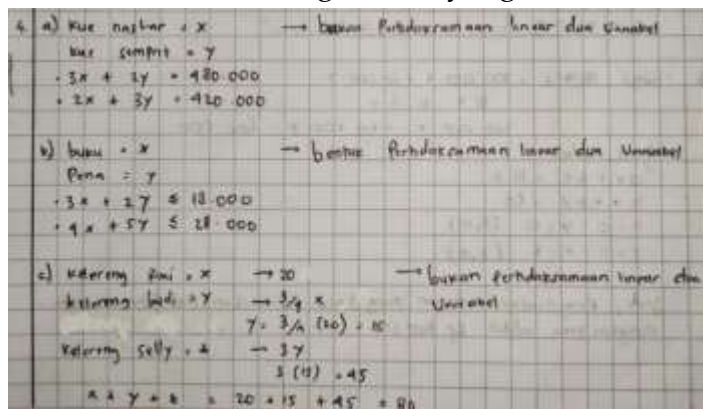 4. a) Kue nastar = x → bukan Pertidaksamaan linear dua Variabel
kue semprit = y
• 3x + 2y = 480.000
• 2x + 3y = 420.000
b) buku = x → bentuk Pertidaksamaan linear dua Variabel
Pena = y
• 3x + 2y ≤ 18.000
• 4x + 5y ≤ 28.000
c) kelereng = x → 20 → bukan pertidaksamaan linear dua
kelereng = y → 3/4 x Variabel
y = 3/4 (20) = 15
kelereng Selly = z → 3y
3 (15) = 45
x + y + z = 20 + 15 + 45 = 80